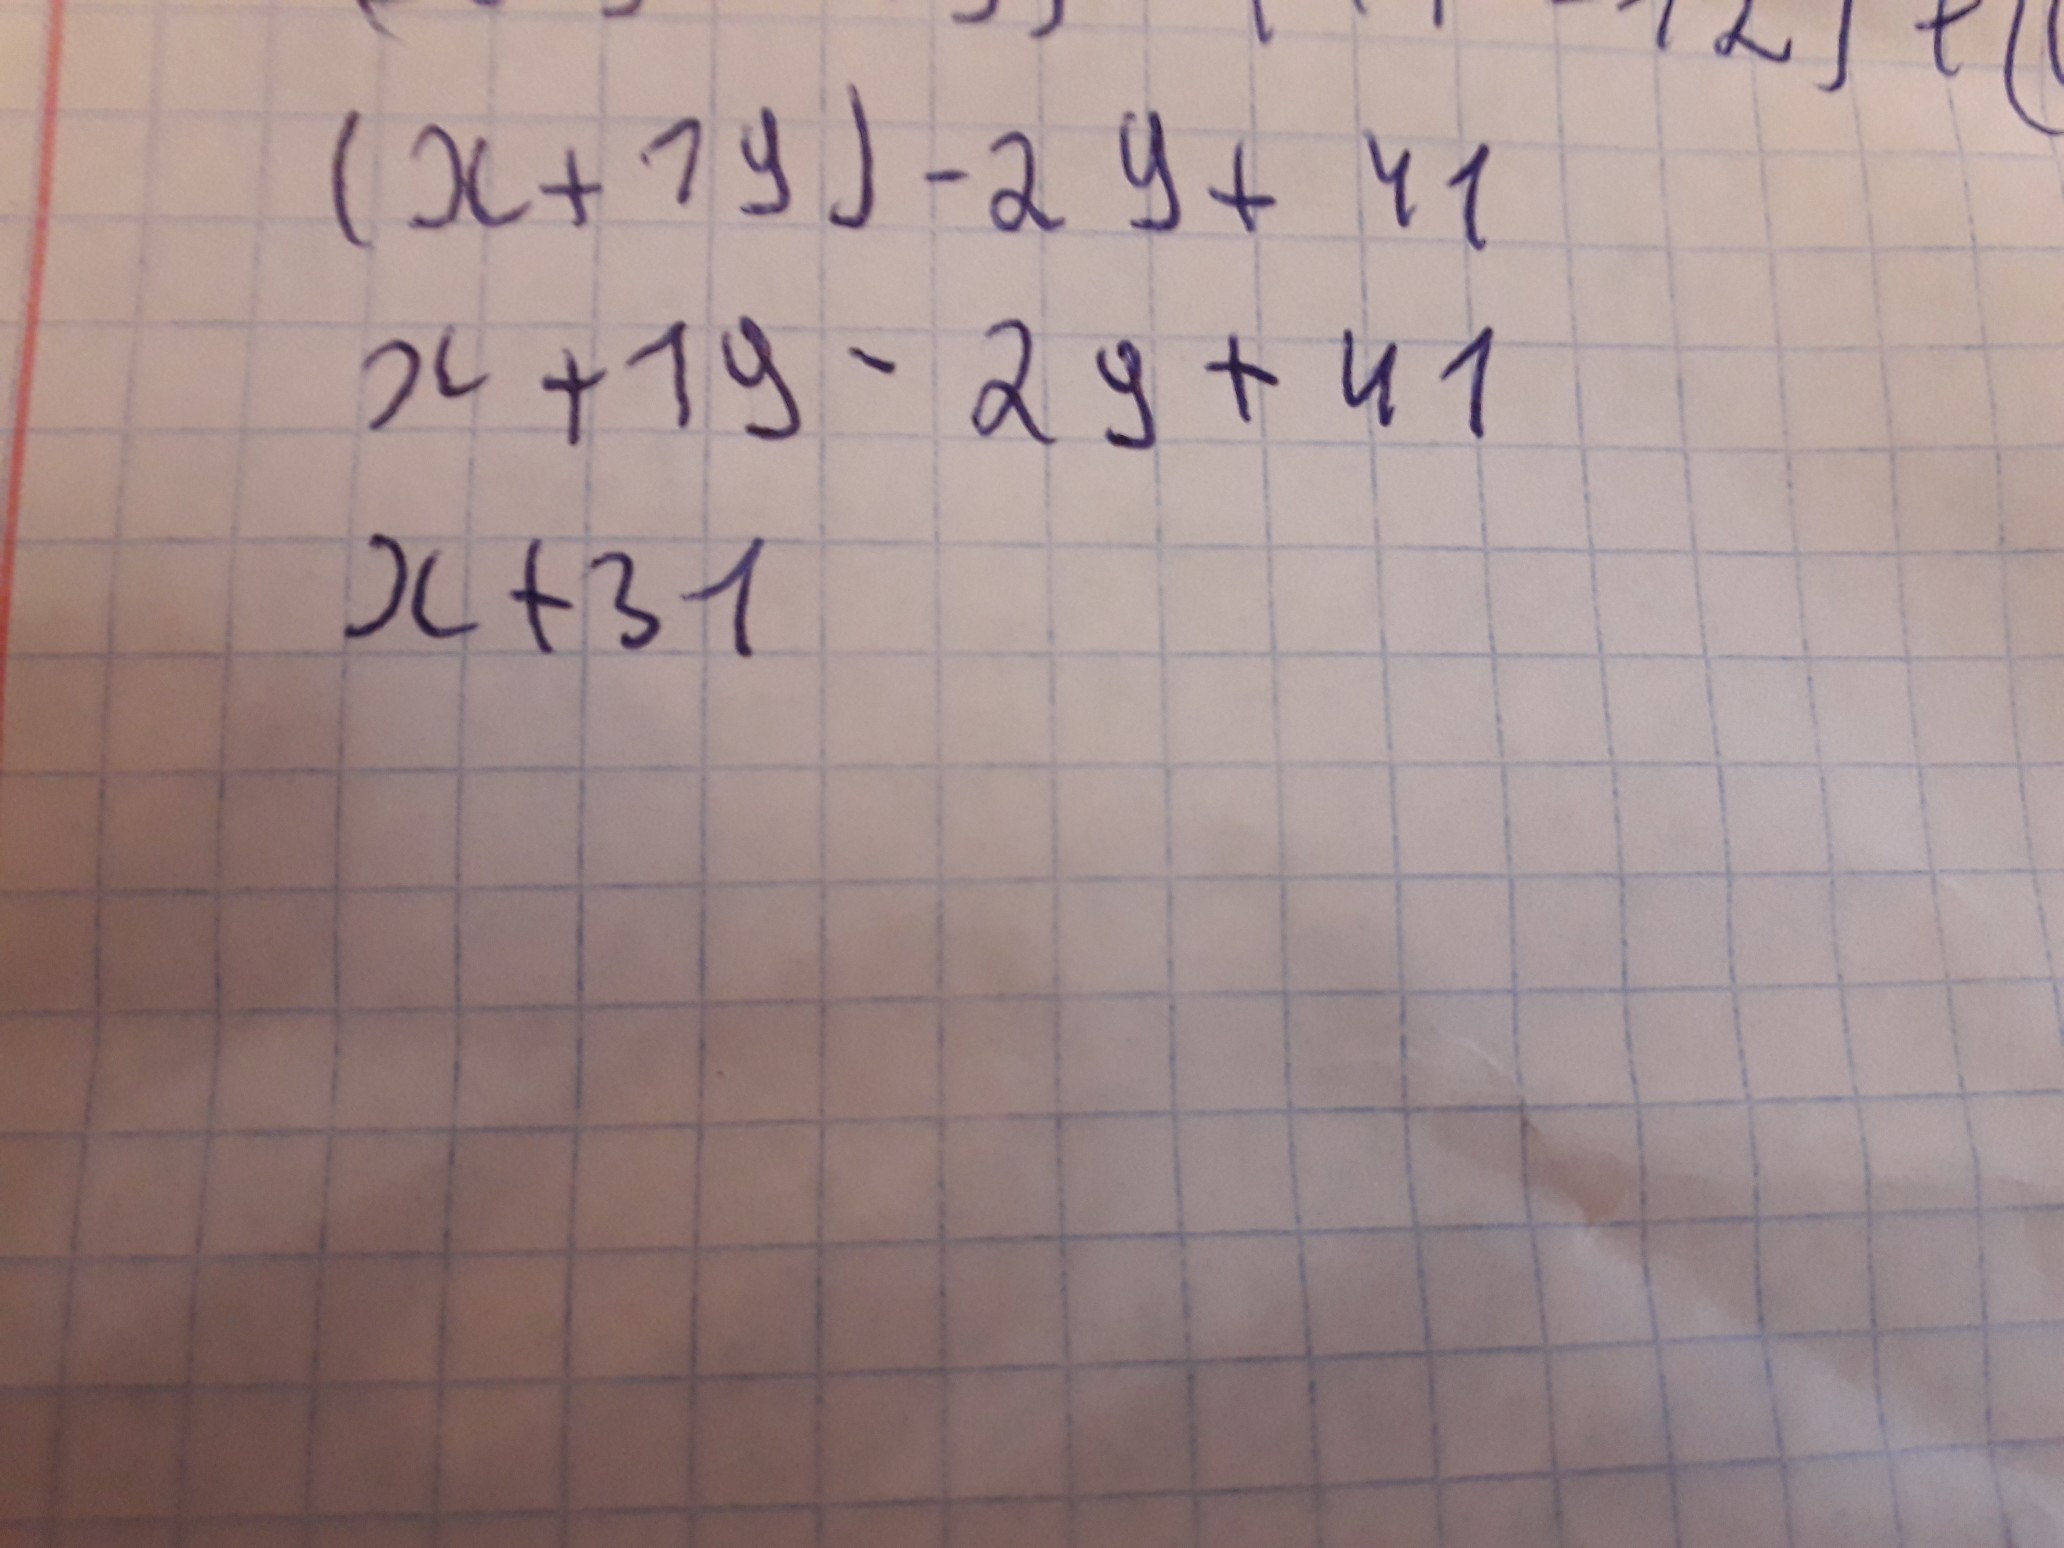 -12)+(
(x+19)-29+41
x+19-29+41
x+31